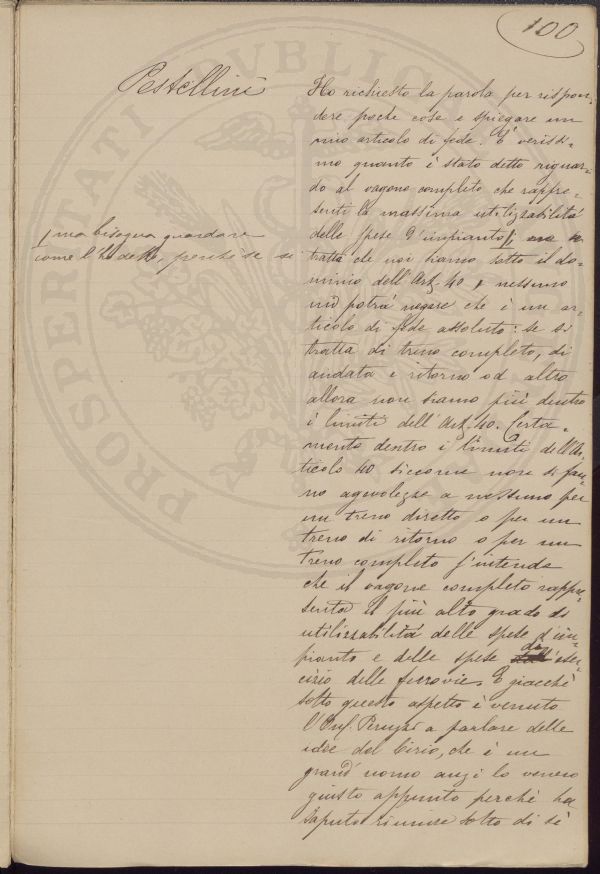 100
Pestellini
Ho richiesto la parola per rispon-
dere poche cose e spiegare un
mio articolo di fede. È verissi-
mo quanto è stato detto riguar-
do al vagone completo che rappre-
senti la massima utilizzabilità
delle spese d'impianto; ma se
ma bisogna guardare
come l'ho detto, perchè se si
tratta che noi siamo sotto il do-
minio dell'Art. 40, nessuno
mi potrà negare che è un ar-
ticolo di fede assoluto: se si
tratta di treno completo, di
andata e ritorno od altro
allora non siamo più dentro
i limiti dell'Art. 40. Certa-
mente dentro i limiti dell'Ar-
ticolo 40 siccome non si fan-
no agevolezze a nessuno per
un treno diretto o per un
treno di ritorno o per un
treno completo s'intende
che il vagone completo rappre-
senta il più alto grado di
utilizzabilità delle spese d'im-
pianto e delle spese di eser-
cizio delle ferrovie. E giacchè
sotto questo aspetto è venuto
l'On. Peruzzi a parlare delle
idee del Cirio, che è un
grand'uomo anzi lo venero
giusto appunto perchè ha
saputo riunire sotto di sè
PROSPERITATI PVBLICAE